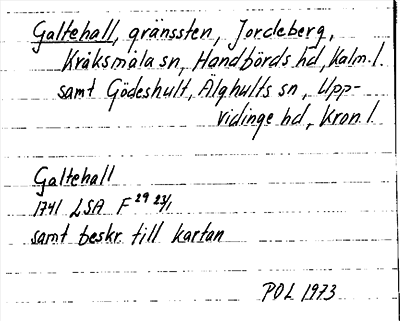 Galtehall, gränssten, Jordeberg,
Kråksmåla sn, Handbörds hd, Kalm. l.
samt Gödeshult, Älghults sn, Upp-
vidinge hd, Kron. l.
Galtehall
1741 LSA F 29 23/1
samt beskr till kartan
POL 1973